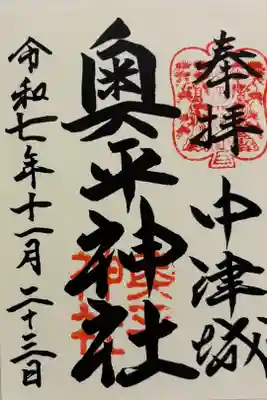 奉拝 中津城
奥平神社
令和七年十一月二十三日